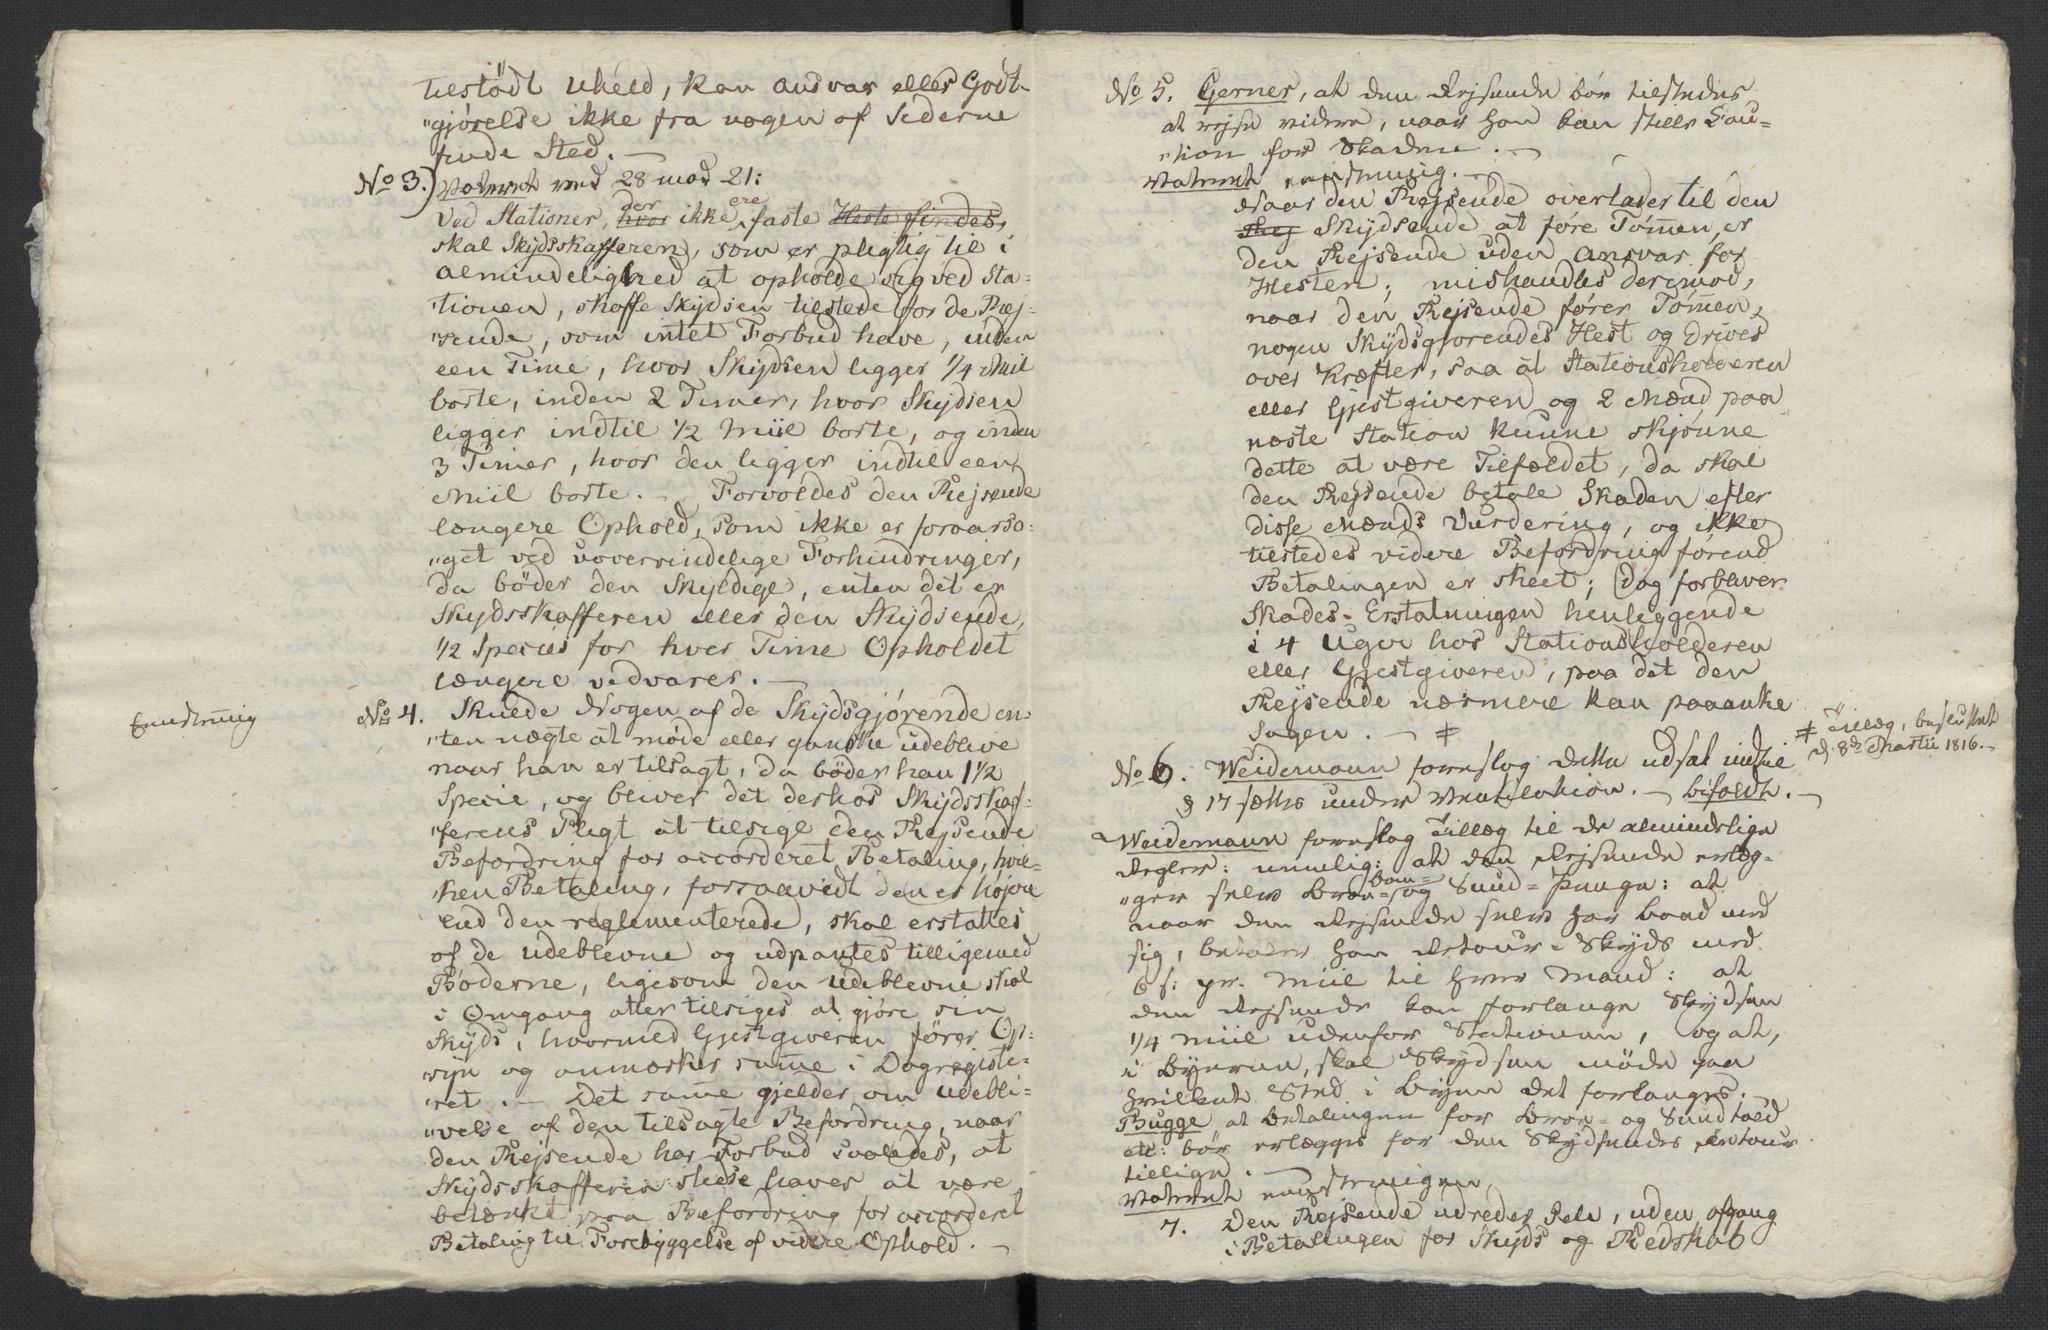 tilstødt Uheld, kan Ansvar eller Godt-
"gjørelse ikke fra nogen af Siderne
finde Sted. —
No 3.) Voteret med 28 mod 21:
Ved Stationer, hvor der ikke ere faste Heste findes,
skal Skydsskafferen, som er pligtig til i
Almindelighed at opholde sig ved Sta-
"tionen, skaffe Skydsen tilstede for de Rej-
"sende, som intet Forbud have, inden
een Time, hvor Skydsen ligger 1/4 Miil
borte, inden 2 Timer, hvor Skydsen
ligger indtil 1/2 Miil borte, og inden
3 Timer, hvor den ligger indtil een
Miil borte. — Forvoldes den Rejsende
længere Ophold, som ikke er foraarsa-
"get ved uovervindelige Forhindringer,
da bøder den Skyldige, enten det er
Skydsskafferen eller den Skydsende,
1/2 Species for hver Time Opholdet
længere vedvarer. —
Eenstemig
No 4. Skulde Nogen af de Skydsgjørende en-
"ten nægte at møde eller ganske udeblive
naar han er tilsagt, da bøder han 1 1/2
Specie, og bliver det derhos Skydsskaf-
"ferens Pligt at tilsige den Rejsende
Befordring for accorderet Betaling, hvil-
"ken Betaling, forsaavidt den er højere
end den reglementerede, skal erstattes
af de udeblevne og udpantes tilligemed
Bøderne, ligesom den udeblevne skal
i Omgang atter tilsiges at gjøre sin
Skyds, hvormed Gjestgiveren fører Op-
"syn og anmærker samme i Dagregiste-
"ret. — Det samme gjelder om Udebli-
"velse af den tilsagte Befordring, naar
den Rejsende har Forbud saaledes, at
Skydsskafferen stedse haver at være
betænkt paa Befordring for accorderet
Betaling til Forebyggelse af videre Ophold. —
No 5. Gerner, at den Rejsende bør tilstedes
at rejse videre, naar han kan stille Cau-
"tion for Skaden. —
Voteret eenstemig. —
Naar den Rejsende overlader til den
Skej Skydsende at føre Tømen, er
den Rejsende uden Ansvar for
Hesten; mishandles derimod,
naar den Rejsende fører Tømen,
nogen Skydsgjørendes Hest og drives
over Kræfter, saa at Stationsholderen
eller Gjestgiveren og 2 Mænd paa
næste Station kunne skjønne
dette at være Tilfældet, da skal
den Rejsende betale Skaden efter
disse Mænds Vurdering, og ikke
tilstedes videre Befordring førend
Betalingen er skeet; Dog forbliver
Skades-Erstatningen henliggende
i 4 Uger hos Stationsholderen
eller Gjestgiveren, paa det den
Rejsende nærmere kan paaanke
Sagen. — ǂ
ǂ Tillæg, besluttet
d. 8de Martii 1816. —
No 6. Weidemann foreslog dette udsat indtil
§ 17 sættes under Ventilation. — bifaldt. —
Weidemann foreslog Tillæg til de almindelige
Regler: nemlig: at den Rejsende erlæg-
"ger selv Broe- Bom- og Sund-Penge: at
naar den Rejsende selv har Baad med
sig, betaler han Retour-Skyds med
6 s: pr. Miil til hver Mand: at
den Rejsende kan forlange Skydsen
1/4 Miil udenfor Stationen, og at,
i Byerne, skal Skydsen møde paa
hvilket Sted i Byen det forlanges.
Bugge at Betalingen for Broe- og Sundtold
etc: bør erlægges for den Skydsendes Retour
tillige. —
Voteret eenstemigen
7. Den Rejsende udreder selv, uden Afgang
i Betalingen for Skyds og Redskab